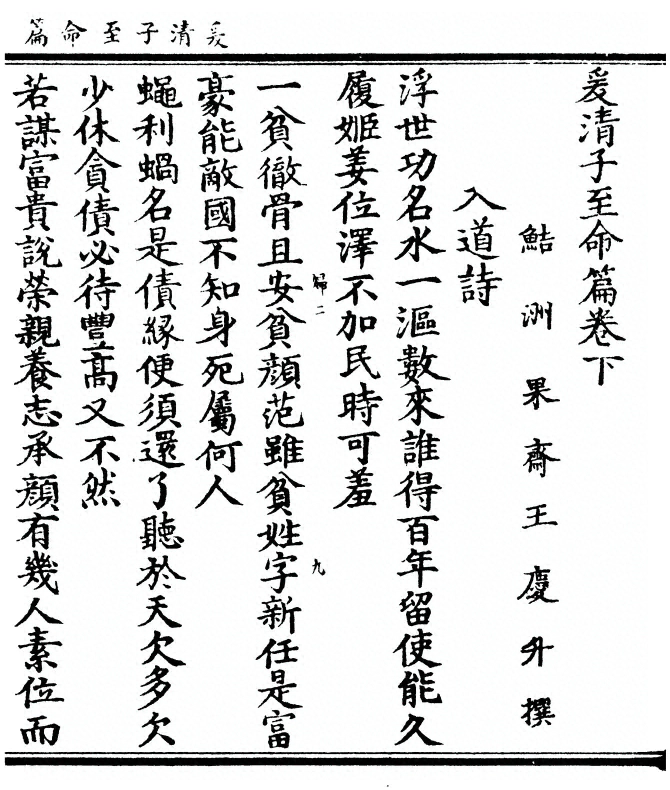 爰清子至命篇
爰清子至命篇卷下
鮚洲果齋王慶升撰
入道詩
浮世功名水一漚數來誰得百年留使能久
履姬姜位澤不加民時可羞
一貧徹骨且安貧顔范雖貧姓字新任是富
歸二
九
豪能敵國不知身死屬何人
蠅利蝸名是債緣便須還了聽於天欠多欠
少休貪債必待豐高又不然
若謀富貴說榮親養志承顏有幾人素位而